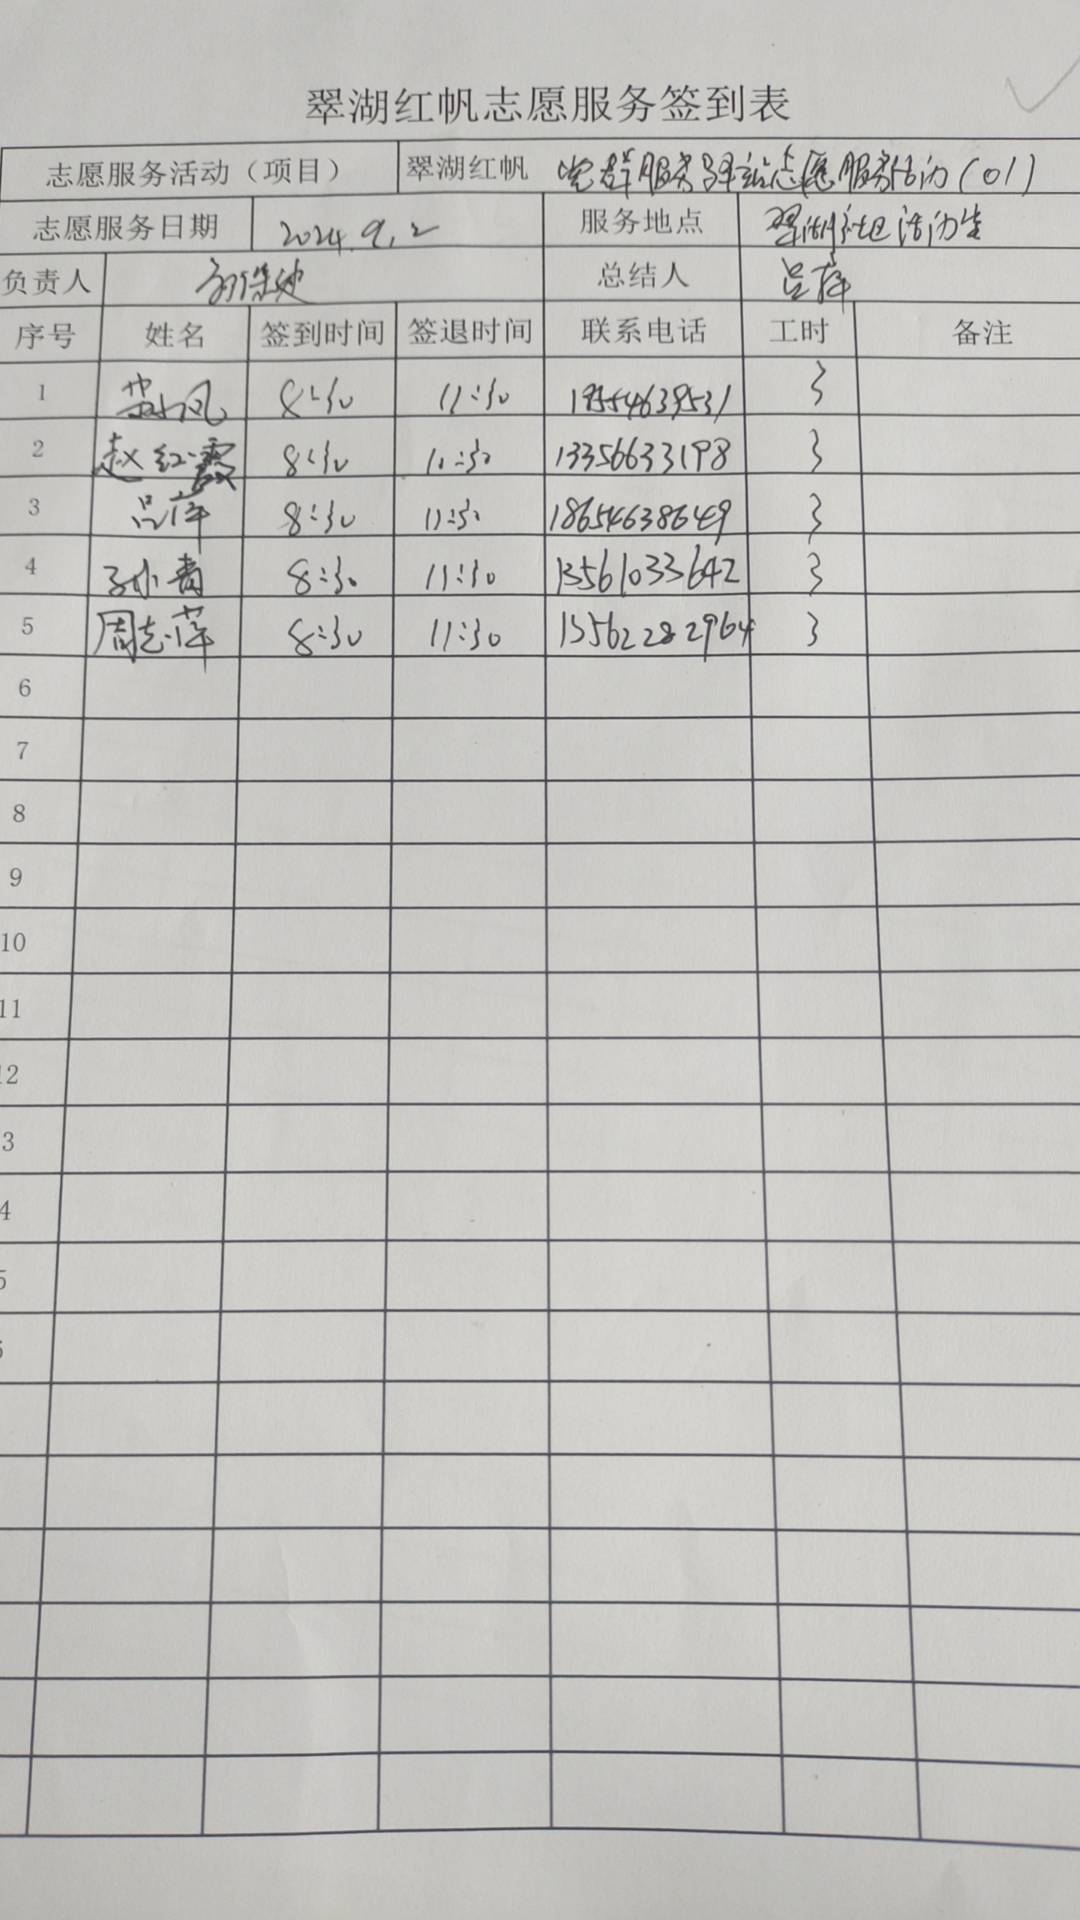 翠湖红帆志愿服务签到表
志愿服务活动（项目） 翠湖红帆 党群服务驿站志愿服务活动（01）
志愿服务日期 2024.9.2 服务地点 翠湖社区活动室
负责人 总结人 吕萍
序号 姓名 签到时间 签退时间 联系电话 工时 备注
1 8:30 11:30 19554639531 3
2 赵红霞 8:30 11:30 13356633198 3
3 吕萍 8:30 11:30 18654638649 3
4 孙青 8:30 11:30 13561033642 3
5 周志萍 8:30 11:30 13562282964 3
6
7
8
9
10
11
12
3
4
5